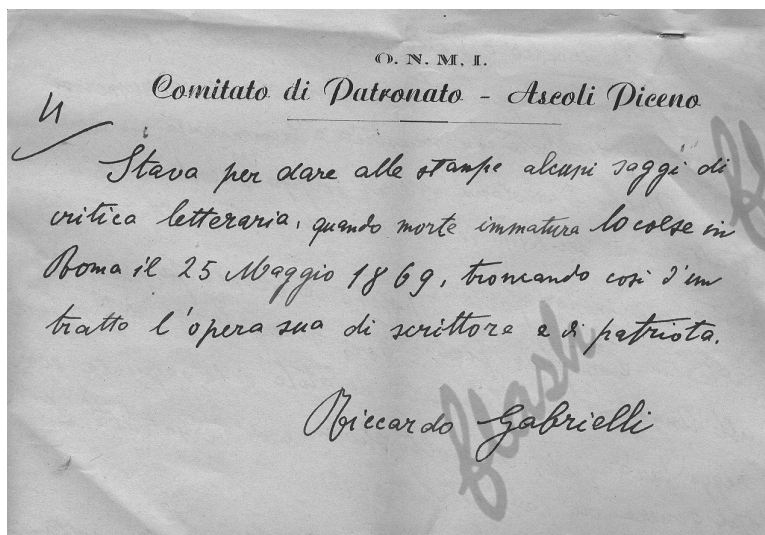 O. N. M. I.
Comitato di Patronato - Ascoli Piceno
4
Stava per dare alle stampe alcuni saggi di
critica letteraria, quando morte immatura lo colse in
Roma il 25 Maggio 1869, troncando così d'un
tratto l'opera sua di scrittore e di patriota.
Riccardo Gabrielli
flash